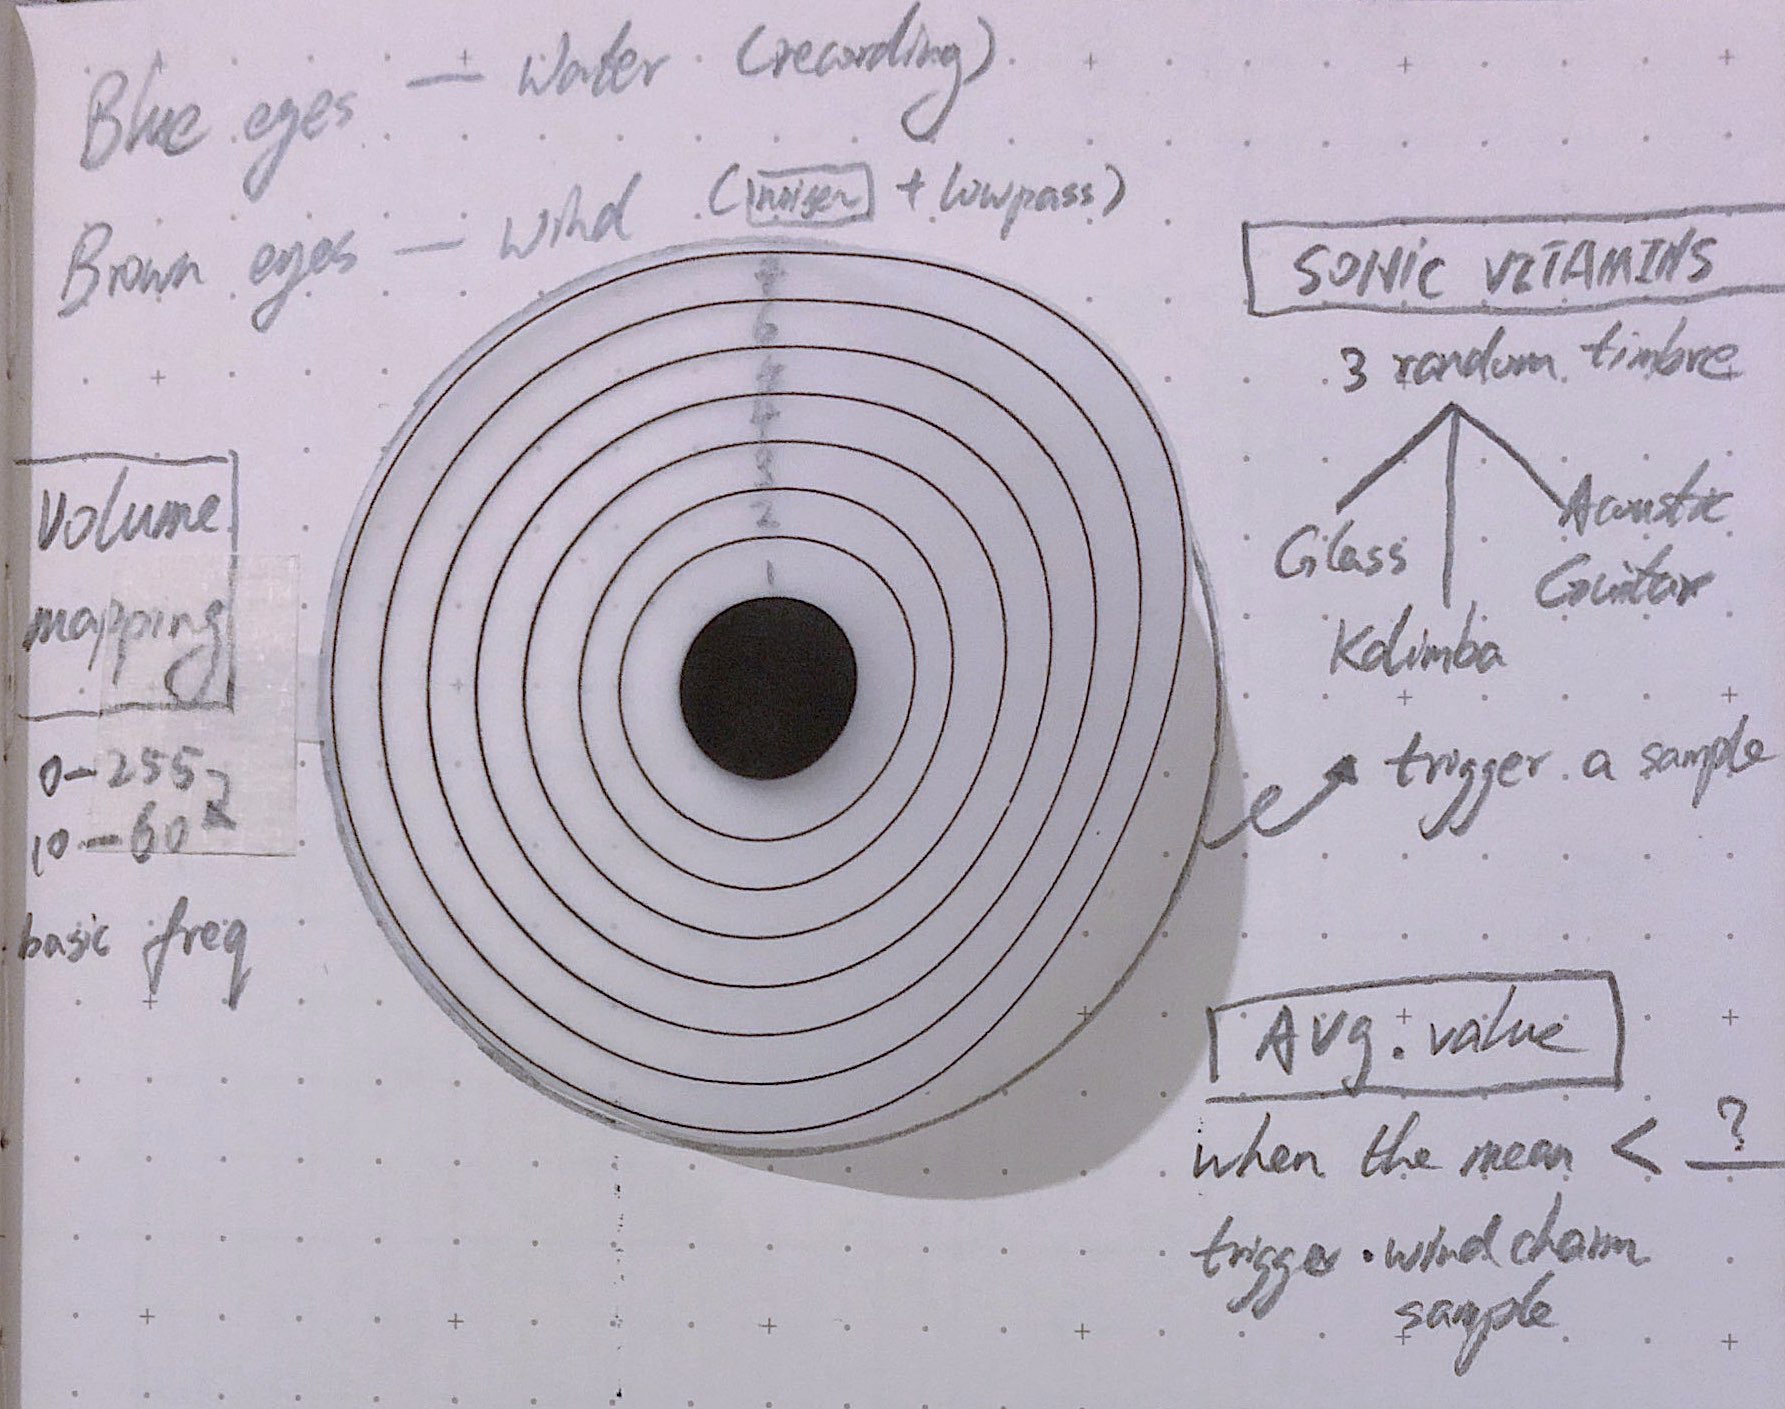 Blue eyes — Water (recording)
Brown eyes — Wind (noise~ + lowpass)
SONIC VITAMINS
3 random timbre
Glass
Kalimba
Acoustic
Guitar
trigger a sample
Volume
mapping
0-255
10-60
basic freq
7
6
5
4
3
2
1
Avg. value
when the mean < ?
trigger wind chaim
sample